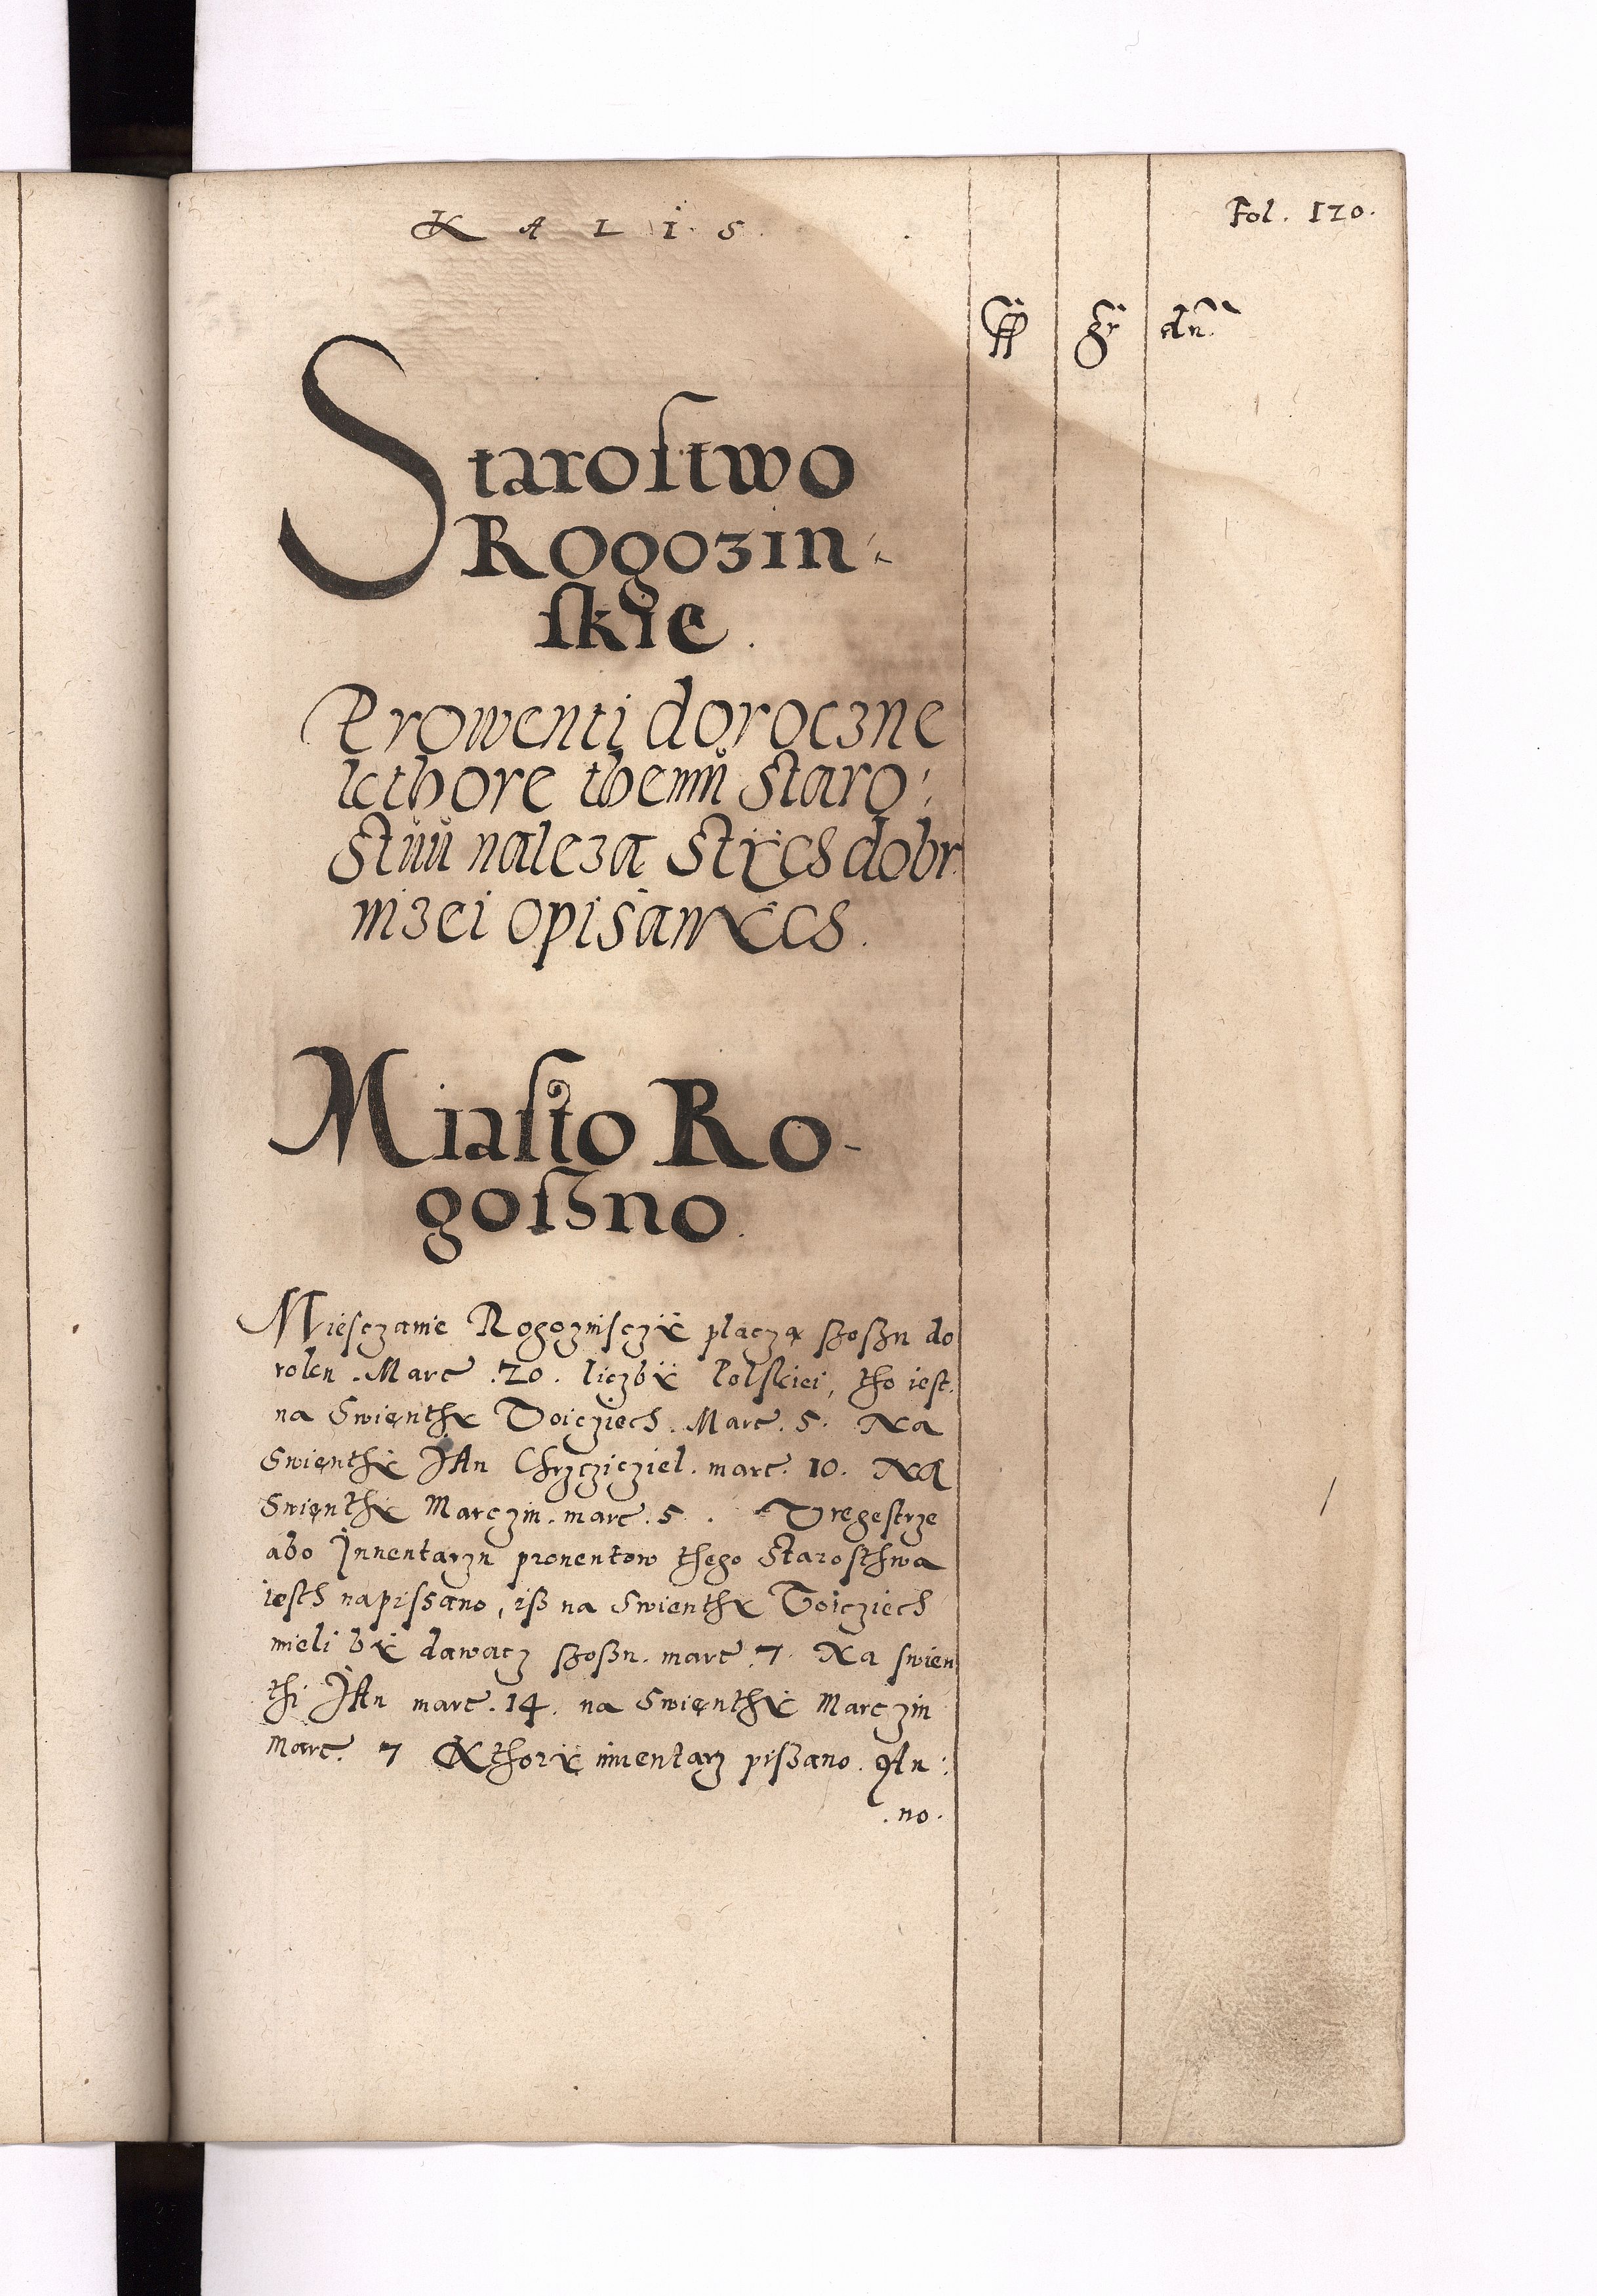 K A L I S
Fol. 120.
ff gr dn.
Staroſtwo
Rogozin-
ſkie.
Prowenti doroczne
kthore themu staro:
stwu naleza sthych dobr
nizei opisanych.
Miaſto Ro-
goſzno.
Miesczanie Rogozinsczÿ placzą szoszu do
roku. Marc. 20. liczbÿ Polskiei, tho iest.
na Swięnthÿ Voicziech. Marc. 5. Na
Swięnthÿ JAn Chrzcziciel. marc. 10. Na
Swięnthÿ Marczin. marc. 5. V regestrze
abo Inuentarzu prouentow thego Starosthwa
iesth napissano, isz na Swienthÿ Voicziech
mieli bÿ dawacz szoszu. marc. 7. Na swien
thi JAn marc. 14. na Swięnthÿ Marczin
Marc. 7 Kthorÿ inuentarz piszano. An:
.no.